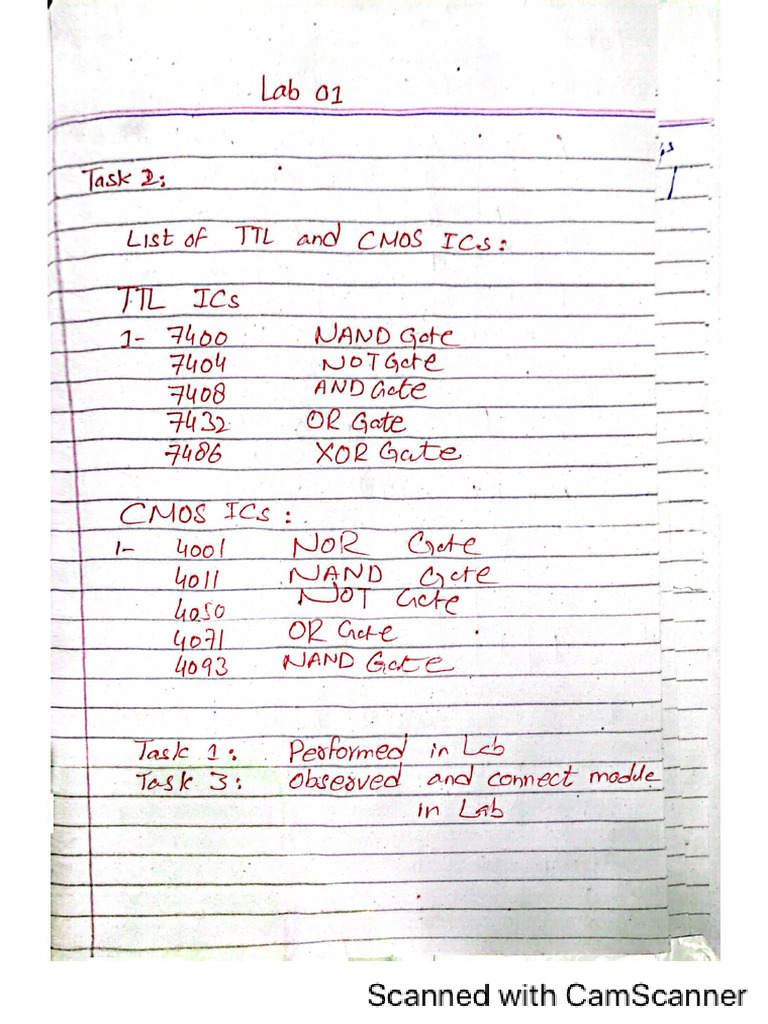 Lab 01
Task 2:
List of TTL and CMOS ICs:
TTL ICs
1- 7400 NAND Gate
7404 NOT Gate
7408 AND Gate
7432 OR Gate
7486 XOR Gate
CMOS ICs:
1- 4001 NOR Gate
4011 NAND Gate
4050 NOT Gate
4071 OR Gate
4093 NAND Gate
Task 1: Performed in Lab
Task 3: Observed and connect modde
in Lab
Scanned with CamScanner